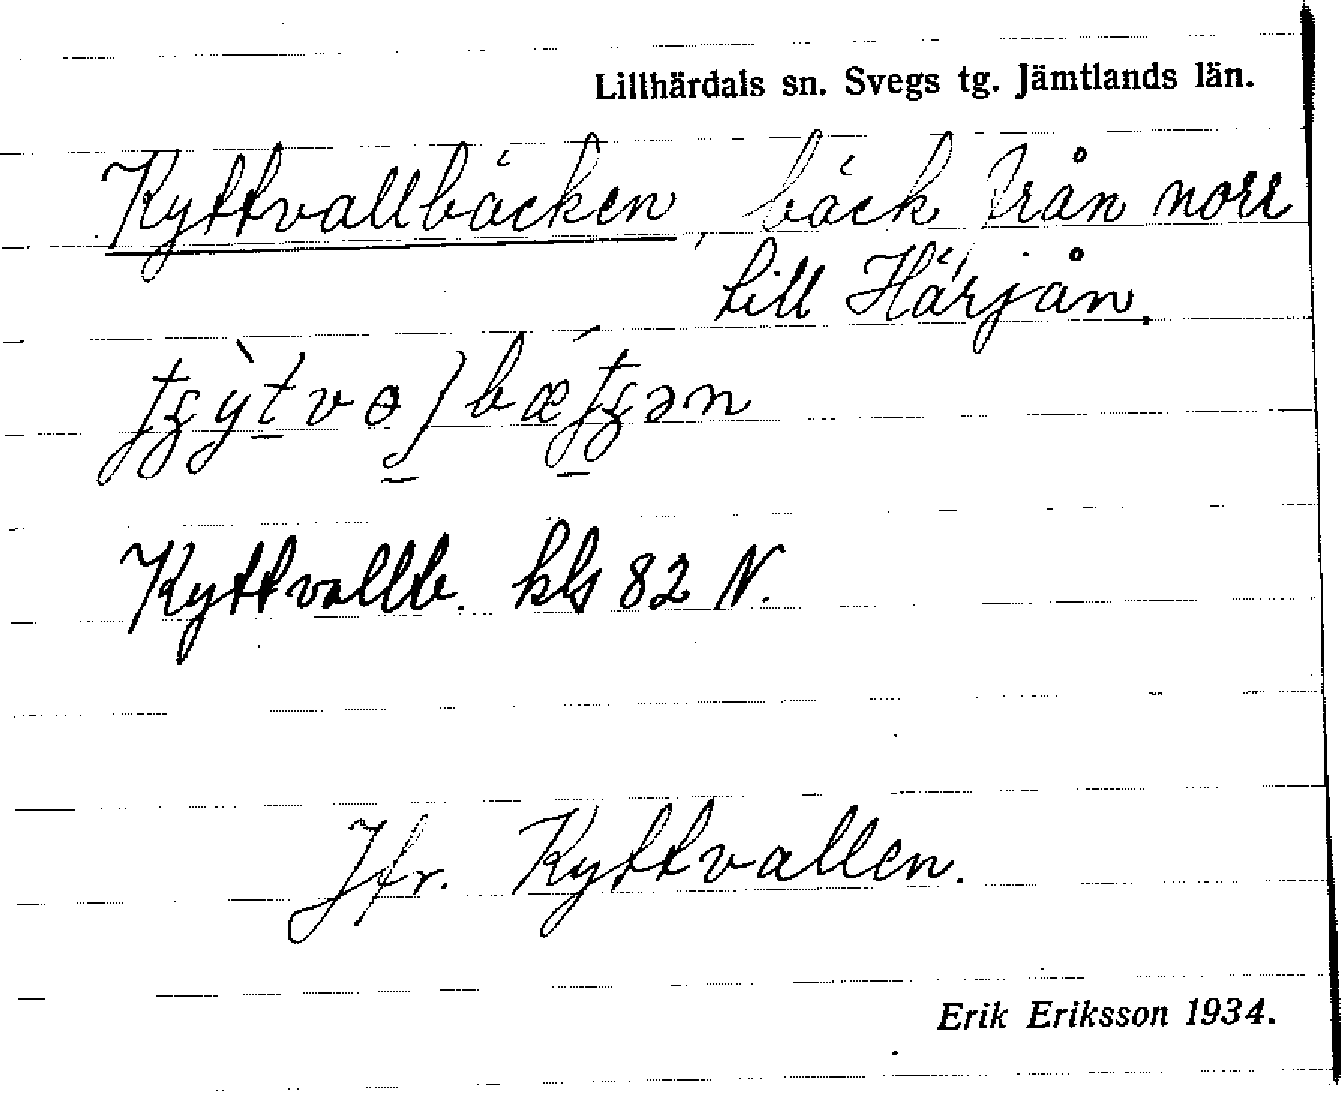 Lillhärdals sn. Svegs tg. Jämtlands län.
Kyttvallbäcken, bäck från norr
till Härjån.
Kyttvallb. kbs 82 N.
Jfr. Kyttvallen.
Erik Eriksson 1934.